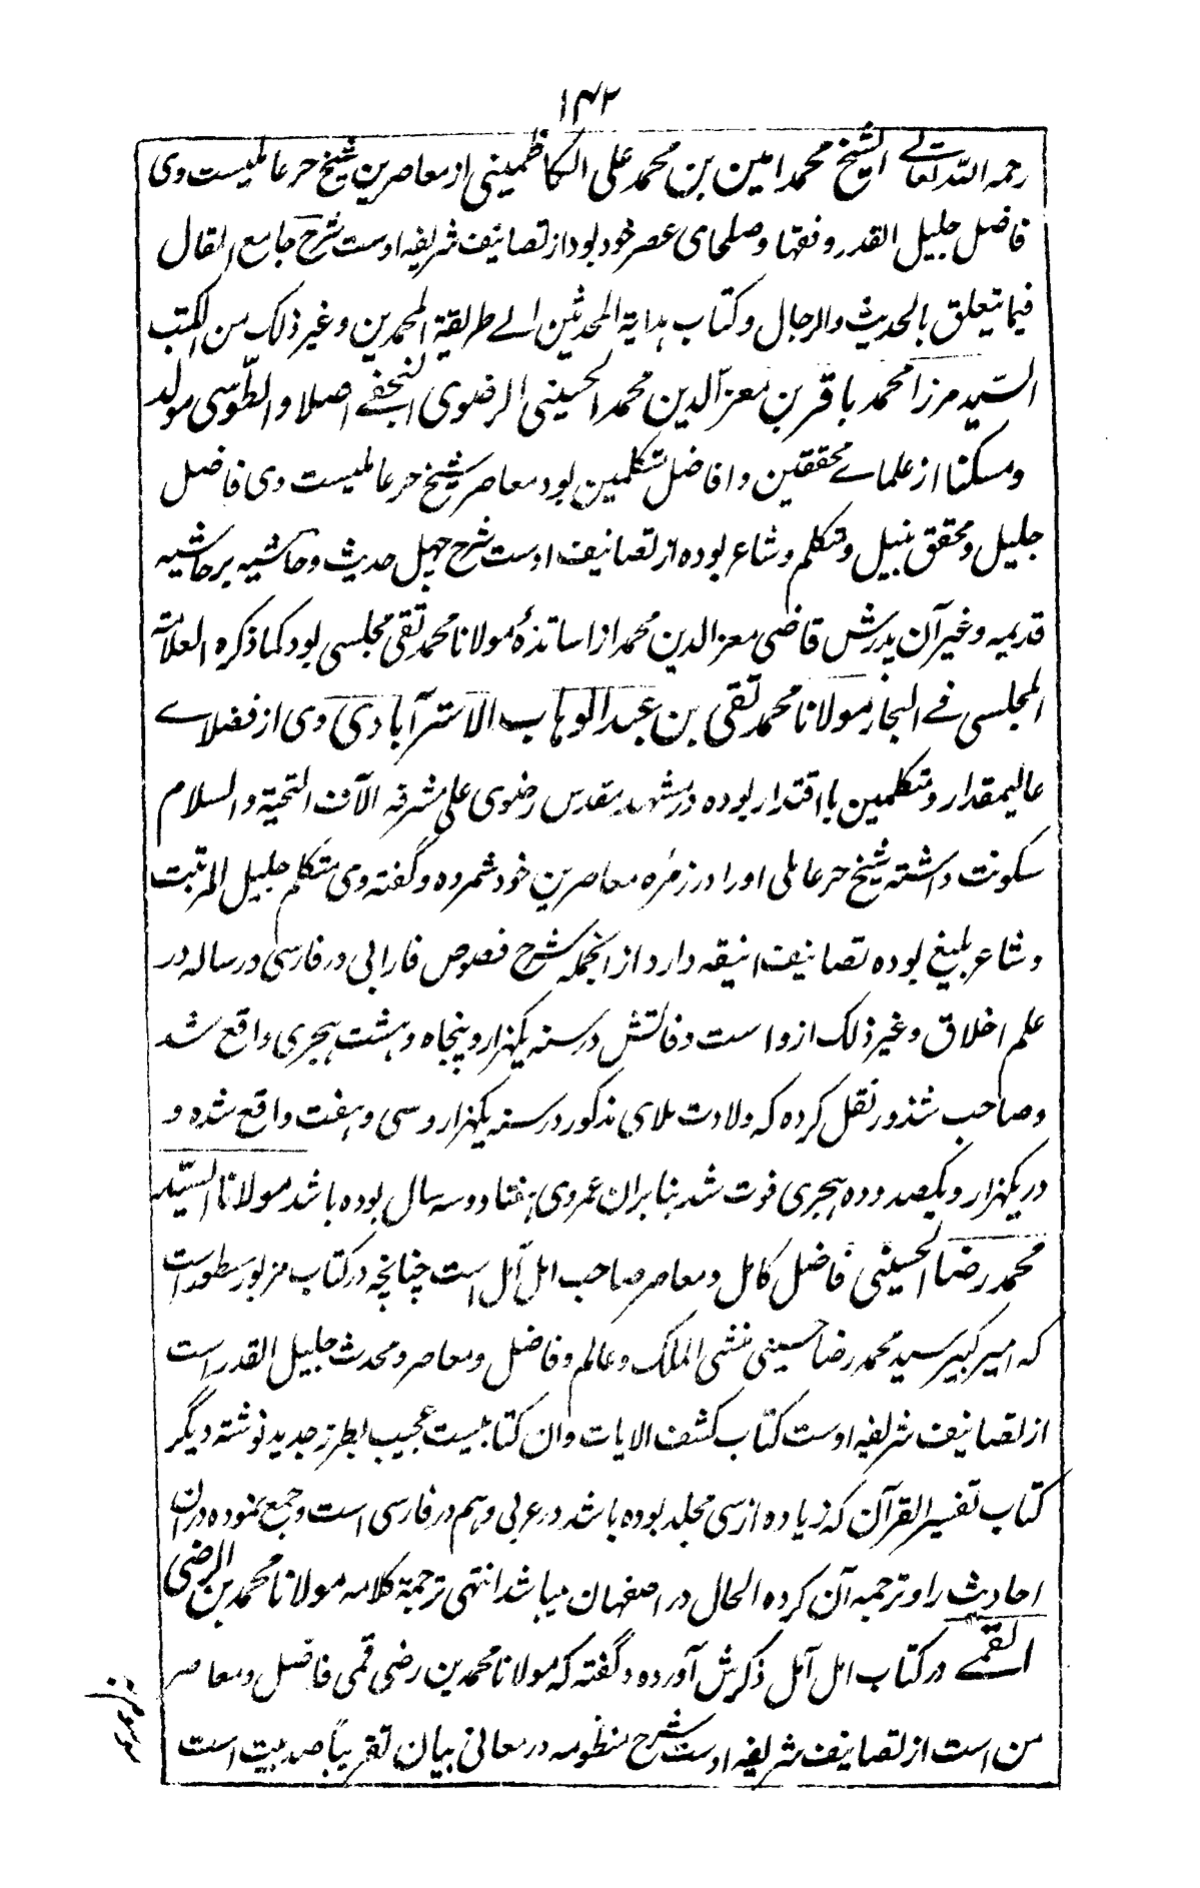 ۱۴۲
رحمه الله تعالے الشیخ محمد امین بن محمد علی الکاظمینی از معاصرین شیخ حر عاملیست وی
فاضل جلیل القدر و فقها و صلحای عصر خود بود از تصانیف شریفه اوست شرح جامع المقال
فیما یتعلق بالحدیث والرجال و کتاب هدایة المحدثین الے طریقة المحمدین و غیر ذلک من الکتب
السید مرزا محمد باقر بن معز الدین محمد الحسینی الرضوی النجفے اصلا والطوسی مولد
ومسکنا از علماے محققین و افاضل متکلمین بود معاصر شیخ حر عاملیست وی فاضل
جلیل و محقق نبیل و متکلم و شاعر بوده از تصانیف اوست شرح چهل حدیث و حاشیه بر حاشیه
قدیمه و غیر آن پدرش قاضی معز الدین محمد از اساتذهٔ مولانا محمد تقی مجلسی بود کما ذکره العلامة
المجلسی فے البحار مولانا محمد تقی بن عبد الوهاب الاسترآبادی وی از فضلاے
عالیمقدار و متکلمین با اقتدار بوده در مشهد مقدس رضوی علی مشرفه الآف التحیة والسلام
سکونت داشته شیخ حر عاملی او را در زمره معاصرین خود شمرده و گفته وی متکلم جلیل المرتبت
و شاعر بلیغ بوده تصانیف انیقه دارد از انجمله شرح فصوص فارابی در فارسی و رساله در
علم اخلاق و غیر ذلک از و است وفاتش در سنه یکهزار و پنجاه و هشت هجری واقع شد
و صاحب شذور نقل کرده که ولادت ملای مذکور در سنه یکهزار و سی و هفت واقع شده و
در یکهزار و یکصد و ده هجری فوت شد بنابران عمر وی هفتاد و سه سال بوده باشد مولانا السید
محمد رضا الحسینی فاضل کامل و معاصر صاحب امل آمل است چنانچه در کتاب مزبور مسطور است
که امیر کبیر سید محمد رضا حسینی منشی الملک و عالم و فاضل و معاصر و محدث جلیل القدر است
از تصانیف شریفه اوست کتاب کشف الایات و ان کتابیست عجیب بطرز جدید نوشته دیگر
کتاب تفسیر القرآن که زیاده از سی مجلد بوده باشد در عربی و هم در فارسی است و جمع نموده در ان
احادیث را و ترجمه آن کرده الحال در اصفهان میباشد انتهی ترجمة کلامه مولانا محمد بن الرضی
القمے در کتاب امل آمل ذکرش آورده و گفته که مولانا محمد بن رضی قمی فاضل و معاصر
من است از تصانیف شریفه اوست شرح منظومه در معانی بیان تقریباً صد بیت است